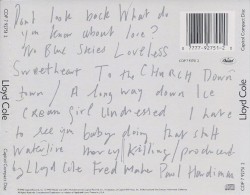 CDP 7 92751 2
Lloyd Cole
Capitol Compact Disc
Dont look back What do
you know about love?
No Blue Skies Loveless
Sweetheart To the CHURCH Down
town / A long way down Ice
cream Girl Undressed I hate
to see you baby doing that stuff
Waterline Mercy Killing/produced
by Lloyd Cole Fred Maher Paul Hardiman
7777-92751-2
CDP 7 92751 2
Capitol
CDP 7 92751 2
Lloyd Cole
Capitol Compact Disc